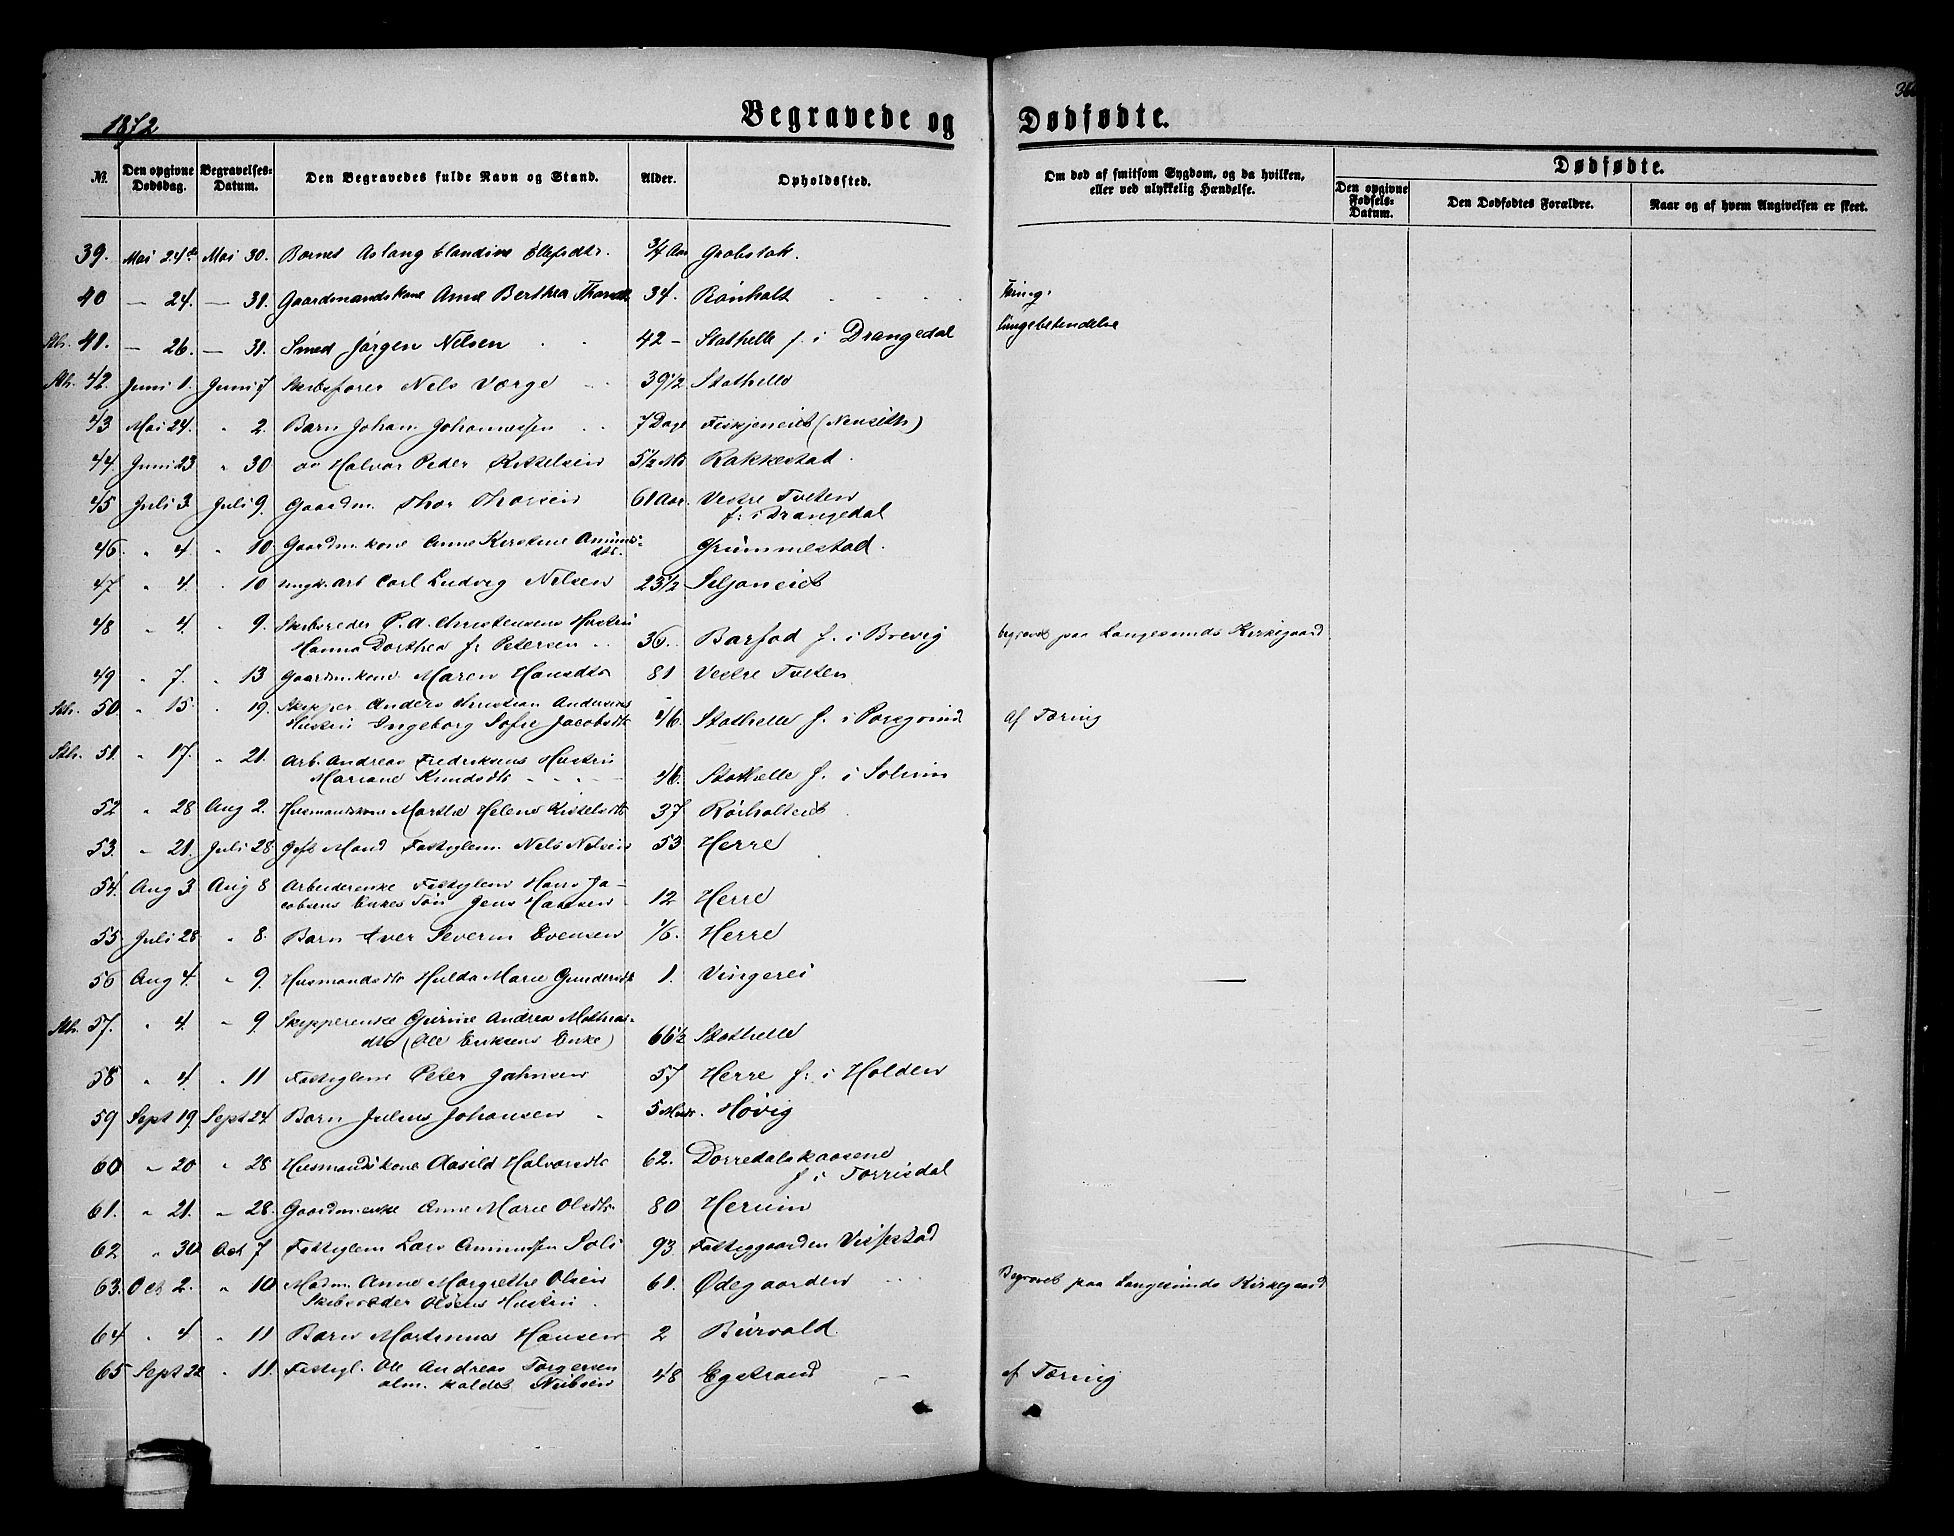 1872
Begravede og Dødfødte.
No. Den opgivne Dødsdag. Begravelses-Datum. Den Begravedes fulde Navn og Stand. Alder. Opholdssted. Om død af smitsom Sygdom, og da hvilken, eller ved ulykkelig Hændelse. Dødfødte.
Den opgivne Fødsels-Datum. Den Dødfødtes Forældre. Naar og af hvem Angivelsen er skeet.
39. Mai 24de Mai 30. Barnet Aslaug 3/4 Aar Grobstok.
40 — 24. — 31. Gaardmandskone Anne Berthea 34. Rönholt Tæring.
Sth. 41. — 26. — 31. Smed Jørgen Nilsen 42 – Stathelle f. i Drangedal Lungebetendelse
Sth. 42. Juni 1. Juni 7 Skibsfører Nels Værge 39 1/2 Stathelle
43 Mai 24. " 2. Barn Johan Johannessen 7 Dage Fiskjeneiet (Nenseth)
44. Juni 23 " 30 do Halvor Peder Kittelsen 5 1/2 Md Rakkestad.
45 Juli 3. Juli 9. Gaardm. Thor Thorsen 61 Aar. Vestre Tveten
f: i Drangedal
46. " 4 " 10. Gaardm.kone Anne Kirstene Amunds-
dtr. Grummestad.
47 " 4. " 10 Ungk. Arb. Carl Ludvig Nilsen 23 1/2 Seljoneiet
48 " 4. " 9. Skibsreder P. A. Christensens Hustru
Hanna Dorthea f: Petersen 36. Barfod f. i Brevig begravet paa Langesunds Kirkegaard
49 " 7. " 13 Gaardm.kone Maren Hansdtr 81 Vestre Tveten
Sth. 50. " 15. " 19. Skipper Anders Christian Andersens
Hustru Ingeborg Sofie Jacobsdtr 46. Stathelle f. i Porsgrund af Tæring
Sth. 51. " 17. " 21. Arb. Andreas Fredriksens Hustru
Mariane Knudsdtr 46. Stathelle f. i Solum
52 " 28 Aug 2. Husmandskone Marthe Helene Kittelsdtr 37 Rörholteiet
53. " 21. Juli 28. Gift Mand Fattiglem Nels Nelsen 53 Herre
54. Aug 3 Aug 8 Arbeiderenke Fattiglem Hans Ja-
cobsens Enkes Søn Jens Hansen 12 Herre
55 Juli 28 " 8. Barn Iver Severin Evensen 1/6. Herre
56 Aug 4. " 9. Husmandsdtr Hulda Marie Gundersdtr 1. Vingerei
Sth. 57. " 4. " 9. Skipperenke Gurine Andrea Mathias-
dtr (Ole Eriksens Enke) 66 1/2 Stathelle
58 " 4 " 11 Fattiglem Peter Jahnsen 57 Herre f: i Holden
59 Sept 19. Sept 24 Barn Julius Johansen 5 Høvig
60 " 20 " 28 Husmandskone Aasild Halvorsdtr 62. Dorredalskaasene
f i Torrisdal
61. " 21. " 28. Gaardm.enke Anne Marie Olsdtr. 80 Herum
62 " 30 Oct 7 Fattiglem Lars Amundsen Soli 93. Fattiggaarden Vissestad
63. Oct 2. " 10 Madm. Anne Margrethe Olsen
Skibsreder Olsens Hustru 61. Ødegaarden Begravet paa Langesunds Kirkegaard
64 " 4 " 11 Barn Martinus Hansen 2 Burvald.
65 Sept " 11. Fattigl. Ole Andreas Torgersen
alm. kaldet 48 Egstrand af Tæring